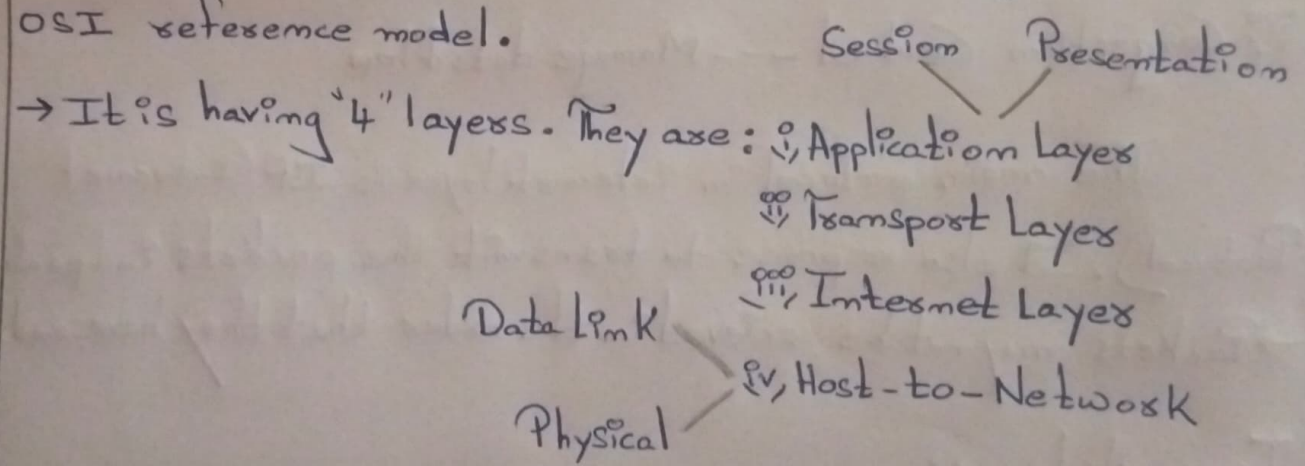 OSI reference model.
Session Presentation
→ It is having "4" layers. They are: i, Application Layer
ii, Transport Layer
iii, Internet Layer
Data Link
iv, Host-to-Network
Physical